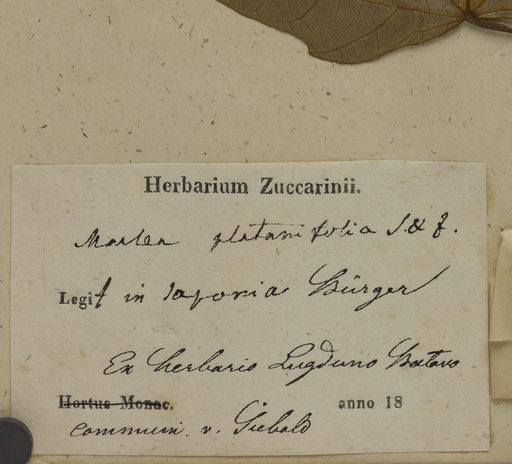 Herbarium Zuccarinii.
Marlea platanifolia S. & Z.
Legit in Japonia Bürger
Ex herbario Lugduno Batavo
Hortus Monac. anno 18
communi. v. Siebold